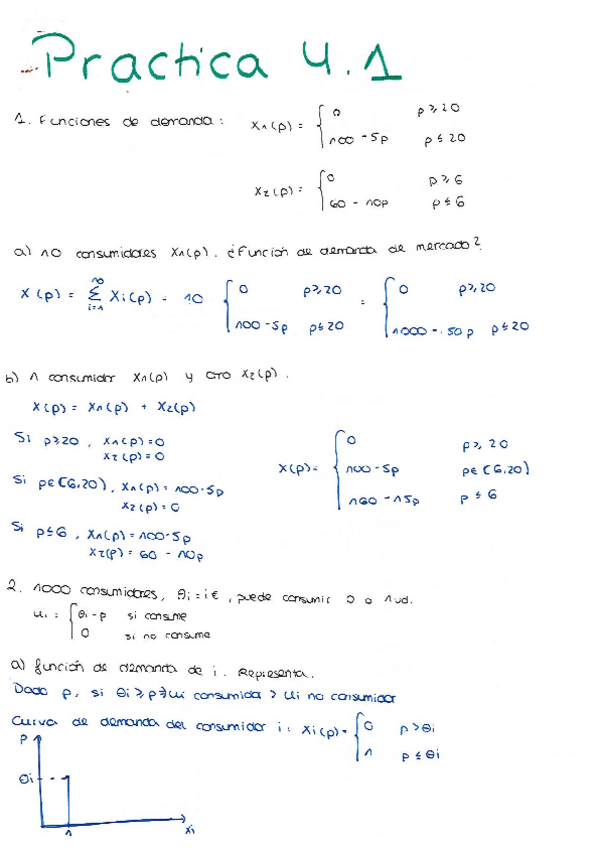 Practica 4.1
1. Funciones de demanda: X1(p) = { 0 p ≥ 20
100 - 5p p ≤ 20
X2(p) = { 0 p ≥ 6
60 - 10p p ≤ 6
a) 10 consumidores X1(p). ¿Función de demanda de mercado?
X(p) = 10 Σ i=1 Xi(p) = 10 { 0 p ≥ 20 = { 0 p ≥ 20
100 - 5p p ≤ 20 1000 - 50p p ≤ 20
b) 1 consumidor X1(p) y otro X2(p).
X(p) = X1(p) + X2(p)
Si p ≥ 20, X1(p) = 0
X2(p) = 0
Si p ∈ (6,20), X1(p) = 100 - 5p
X2(p) = 0
Si p ≤ 6, X1(p) = 100 - 5p
X2(p) = 60 - 10p
X(p) = { 0 p ≥ 20
100 - 5p p ∈ (6,20)
160 - 15p p ≤ 6
2. 1000 consumidores, θi = i €, puede consumir 0 o 1 ud.
ui = { θi - p si consume
0 si no consume
a) función de demanda de i. Representa.
Dado p, si θi ≥ p ⇒ ui consumida > ui no consumidor
Curva de demanda del consumidor i: Xi(p) = { 0 p > θi
1 p ≤ θi
p
θi
1
xi